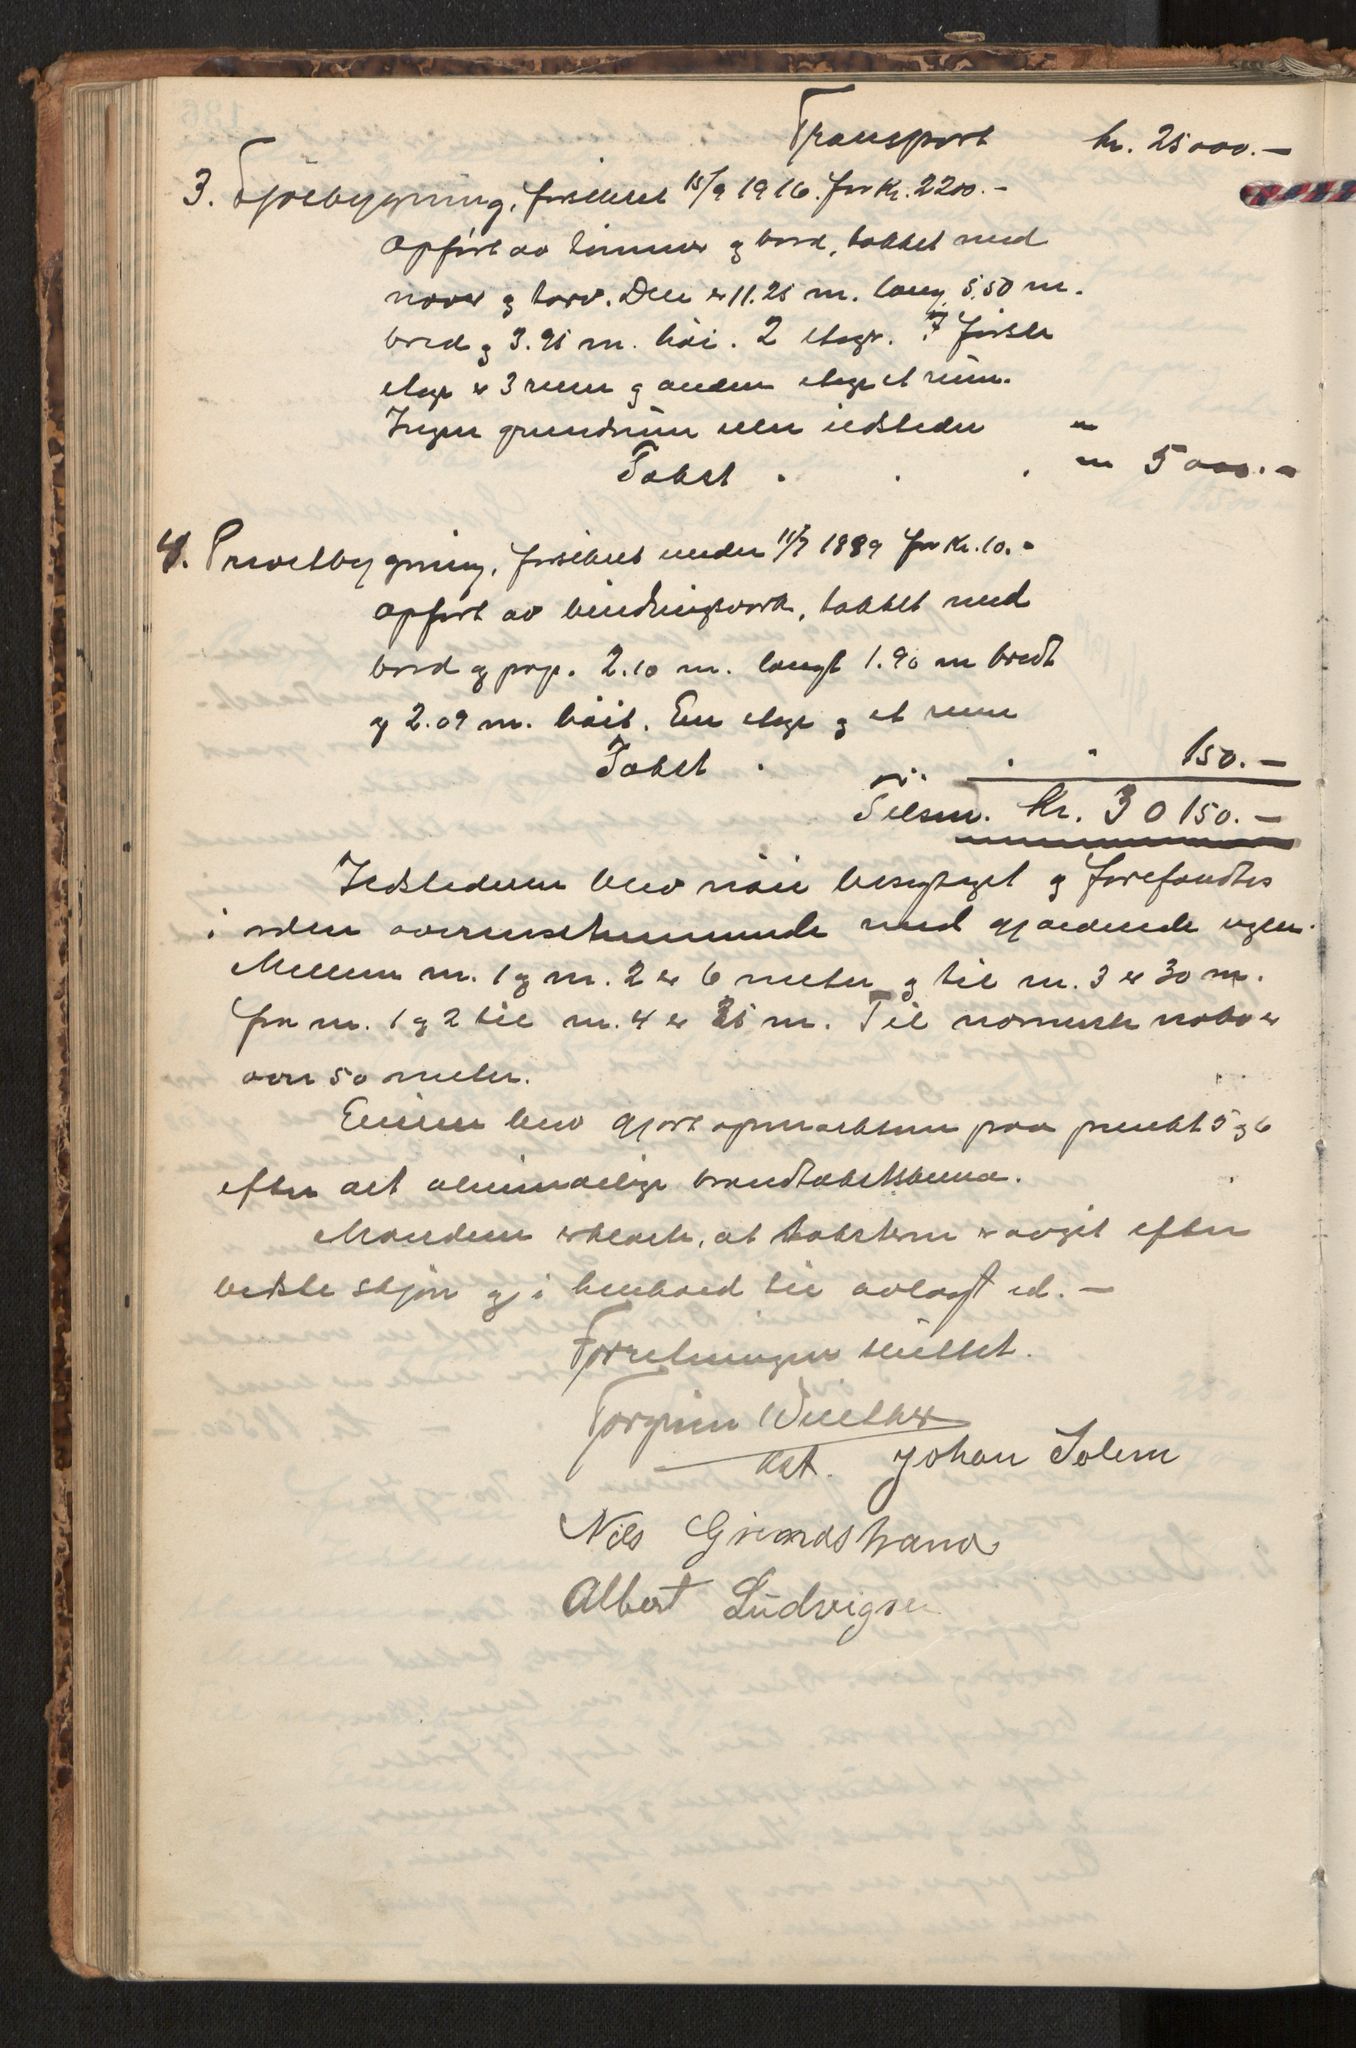 Transport kr. 25000.-
3. Fjøsbygning, forsikret 15/9 1916 for Kr. 2200.-
opført av tømmer og bord, takket med
næver og torv. Den er 11.25 m. lang, 5.50 m.
bred og 3.95 m. høi. 2 etager. I første
etage er 3 rum og anden etage et rum.
Ingen grundmur eller ildsteder
Takst . . . " 5000.-
4. Privetbygning, forsikret under 11/7 1889 for Kr. 10.-
opført av bindingsverk, takket med
bord og pap. 2.10 m. langt 1.90 m bredt
og 2.09 m. høit. En etage og et rum
Takst . . . 150.-
Tilsm. Kr. 30150.-
Ildstederne blev nøie besigtiget og forefandtes
i orden overensstemmende med gjældende regler.
Mellem nr. 1 og nr. 2 er 6 meter og til nr. 3 er 30 m.
fra nr. 1 og 2 til nr. 4 er 25 m. Til nærmeste nabo er
over 50 meter.
Eieren blev gjort opmerksom paa punkt 5 og 6
efter det almindelige brandtakstskema.
Mændene erklærte, at taksterne er avgit efter
bedste skjøn og i henhold til avlagt ed. -
Forretningen sluttet.
Torginn
kst. Johan Solem
Nils Grindstrand
Albert Ludvigsen